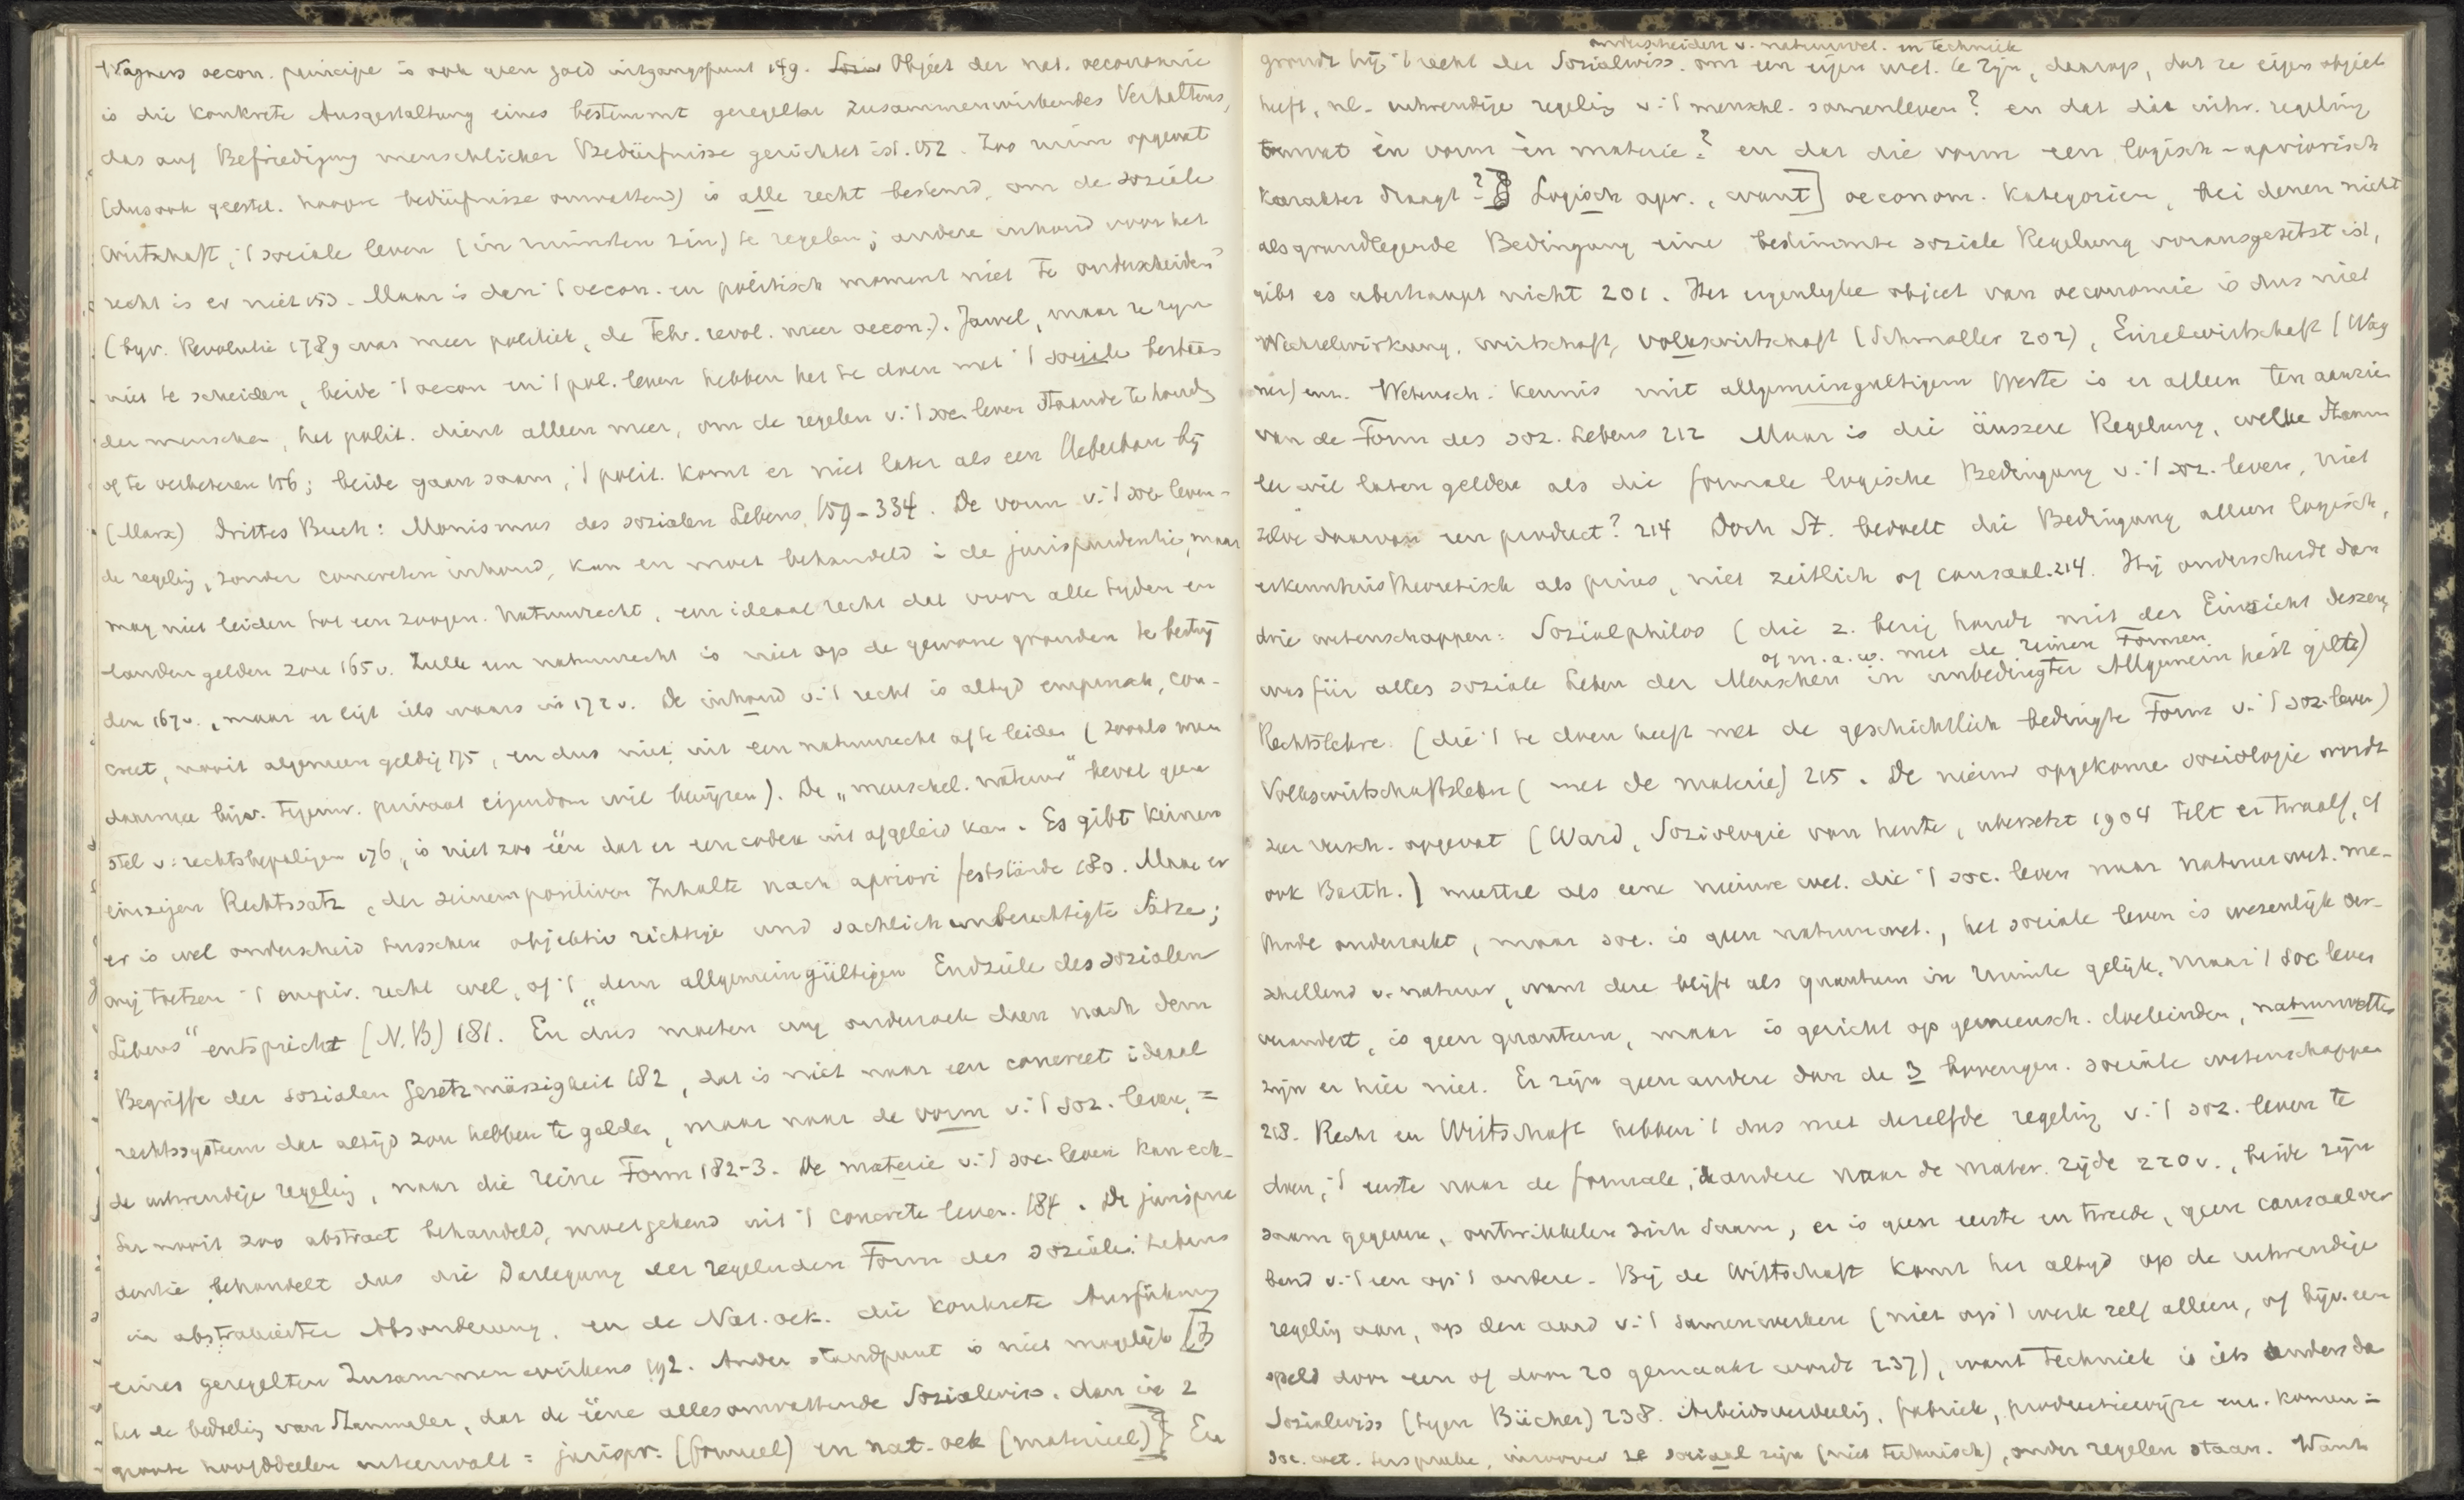 Wagners oecon. principe is ook geen goed uitgangspunt 149. Object der nat. oeconomie
is die Konkrete Ausgestaltung eines bestimmt geregelten Zusammenwirkendes Verhaltens,
das auf Befriedigung menschlicher Bedürfnisse gerichtet ist. 152. Zoo ruim opgevat
(dus ook geestel. hoogere bedürfnisse omvattend) is alle recht bestemd, om de soziale
Wirtschaft, 't sociale leven (in ruimsten zin) te regelen; andere inhoud voor het
recht is er niet 153. Maar is dan 't oecon. en politisch moment niet te onderscheiden?
(byv. Revolutie 1789 was meer politiek, de Febr. revol. meer oecon.). Jawel, maar ze zyn
niet te scheiden, beide 't oecon en 't pol. leven hebben het te doen met 't sociale bestaan
der menschen, het polit. dient alleen meer, om de regelen v. 't soc. leven staande te houden
of te verbeteren 156; beide gaan saam, 't polit. komt er niet later als een Ueberbau bij
(Marx) Drittes Buch: Monismus des sozialen Lebens 159-334. De vorm v. 't soc. leven =
de regeling, zonder concreten inhoud, kan en moet behandeld i. de jurisprudentie, maar
mag niet leiden tot een zoogen. Natuurrecht, een ideaal recht dat voor alle tyden en
landen gelden zou 165v. Zulk een natuurrecht is niet op de gewone gronden te bestrij
den 167v., maar er ligt iets waars in 172v. De inhoud v. 't recht is altyd empirisch, con-
creet, nooit algemeen geldig 175, en dus niet uit een natuurrecht af te leiden (zooals men
daarmee bijv. tegenw. privaat eigendom wil bewijzen). De „menschel. natuur" bevat geen
stel v. rechtsbepalingen 176, is niet zoo één dat er een codex uit afgeleid kan. Es gibt keinen
einzigen Rechtssatz, der seinem positiven Inhalte nach apriori feststände 180. Maar er
er is wel onderscheid tusschen objektiv richtige und sachlich unberechtigte Sätze;
wij toetsen 't empir. recht wel, of 't „dem allgemeingültigen Endziele des sozialen
Lebens" entspricht (N.B) 181. En dus moeten wy onderzoek doen nach dem
Begriffe der sozialen Gesetzmässigheit 182, dat is niet naar een concreet ideaal
rechtssysteem dat altijd zou hebben te gelden, maar naar de vorm v. 't soz. leven, =
de uitwendige regeling, naar die reine Form 182-3. De materie v. 't soc. leven kan ech-
ter nooit zoo abstract behandeld, moet gekend uit 't concrete leven. 184. De jurispru
dentie behandelt dus die Darlegung der regelnden Form des sozialen Lebens
in abstrahierter Absonderung, en de Nat. oek. die konkrete Ausführung
eines geregelten Zusammenwirkens 192. Ander standpunt is niet mogelijk [Is
het de bedoeling van Stammler, dat de ééne allesomvattende Sozialwiss. dan in 2
groote hoofddeelen uiteenvalt = jurispr. (formeel) en nat-oek (materieel)?] En
onderscheiden v. natuurwet. en techniek
grondt hij 't recht der Sozialwiss. om een eigen wet. te zijn, daarop, dat ze eigen object
heeft, nl. uitwendige regeling v. 't menschl. samenleven? en dat die uitw. regeling
omvat èn vorm èn materie? en dat die vorm een logisch-apriorisch
karakter draagt? Logisch apr., want] oeconom. Kategorien, bei denen nicht
als grundlegende Bedingung eine bestimmte soziale Regelung vorausgesetzt ist,
gibt es überhaupt nicht 201. Het eigenlyke object van oeconomie is dus niet
Wechselwirkung, wirtschaft, volkswirtschaft (Schmoller 202), Einzelwirtschaft (Wag
ner) enz. Wetensch. kennis mit allgemeingültigem Werte is er alleen ten aanzien
van de Form des soz. Lebens 212 Maar is die äuszere Regelung, welke Stamm
ler wil laten gelden als die formale logische Bedingung v. 't soz. leven, niet
zelve daarvan een product? 214 Doch St. bedoelt die Bedingung alleen logisch,
erkenntnistheoretisch als prius, niet zeitlich of causaal. 214. Hij onderscheidt dan
drie wetenschappen: Sozialphilos (die z. bezig houdt mit der Einsicht dessen,
of m.a.w. met de reinen Formen
was für alles soziale Leben der Menschen in unbedingter Allgemeinheit gilt)
Rechtslehre (die 't te doen heeft met de geschichtlich bedingte Form v. 't soz. leven)
Volkswirtschaftslehre (met de materie) 215. De nieuw opgekomen sociologie wordt
zeer versch. opgevat (Ward, Soziologie van heute, übersetzt 1904 telt er twaalf, cf
ook Barth.) meestal als eene nieuwe wet. die 't soc. leven naar natuurwet. me-
thode onderzoekt, maar soc. is geen natuurwet., het sociale leven is wezenlijk ver-
schillend v. natuur, want deze blijft als quantum in ruimte gelijk, maar 't soc. leven
verandert, is geen quantum, maar is gericht op gemeensch. doeleinden, natuurwetten
zijn er hier niet. Er zijn geen andere dan de 3 bovengen. sociale wetenschappen
218. Recht en Wirtschaft hebben 't dus met dezelfde regeling v. 't soz. leven te
doen, 't eerste naar de formale, de andere naar de mater. zijde 220v., beide zijn
saam gegeven, ontwikkelen zich saam, er is geen eerste en tweede, geen causaalver
band v. 't een op 't andere. Bij de Wirtschaft komt het altyd op de uitwendige
regeling aan, op den aard v. 't samenwerken (niet op 't werk zelf alleen, of bijv. een
speld door een of door 20 gemaakt wordt 237), want techniek is iets anders dan
Sozialwiss (tegen Bücher) 238. Arbeidsverdeeling, fabriek, productiewijze enz. komen i.
soc. wet. ter sprake, inzoover ze sociaal zijn (niet technisch), onder regelen staan. Want